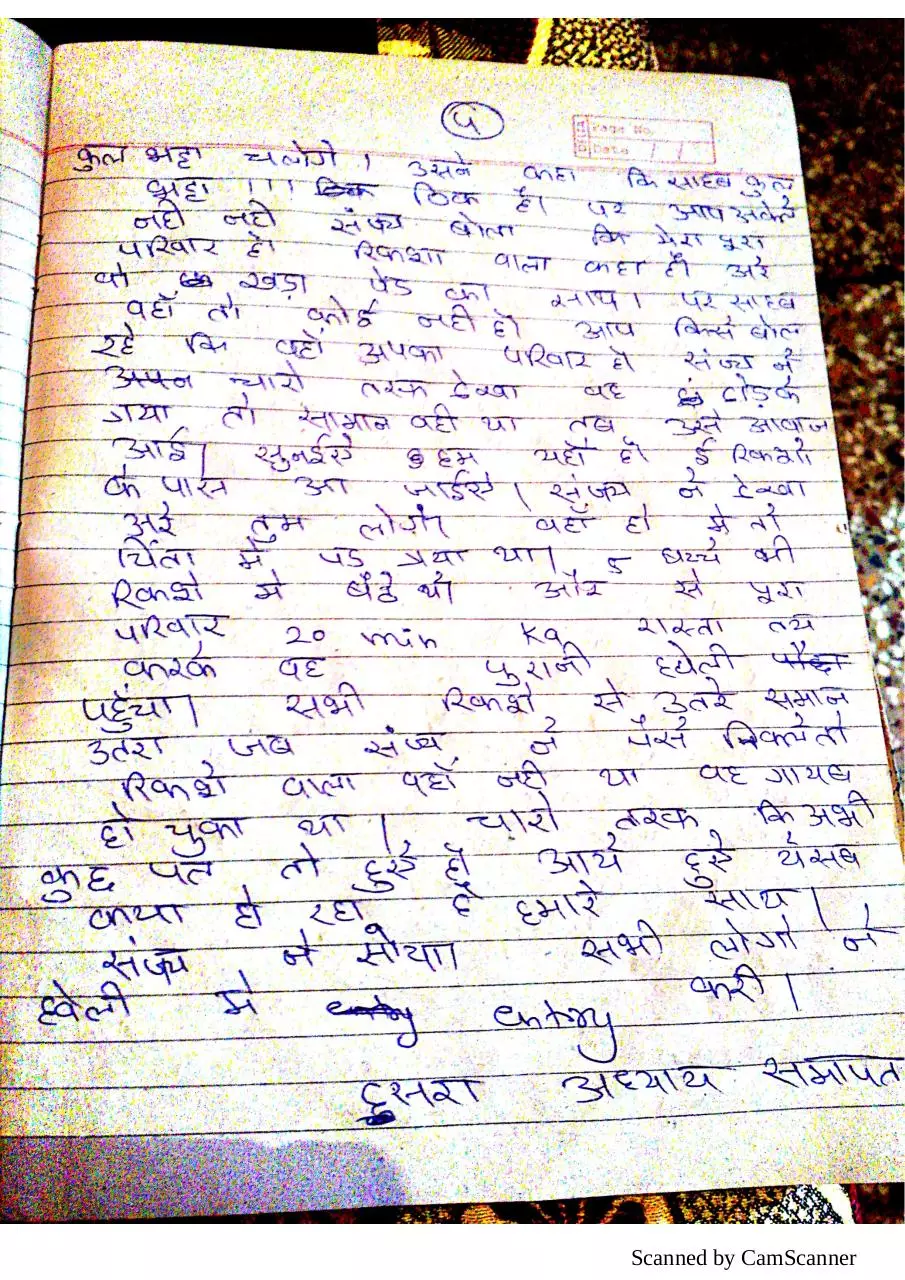 ५
Page No.
Date / /
कुल भट्टा चलोगे। उसने कहा कि साहब कुल
भट्टा ।।। ठिक है। पर आप अकेले
नही नही संज्य बोला कि मेरा पुरा
परिवार है। रिकशा वाला कहा है। अरे
वो खड़ा पेड का साथ। पर साहब
वहाँ तो कोई नही है। आप किसे बोल
रहे कि वहाँ अपका परिवार है। संज्य ने
च्यारो तरफ देखा वह दोड़के
गया तो सामान वही था तब उसे आवाज
आई। सुनईसे हम यहाँ है। ई रिकशे
के पास आ जाईसे। संज्य ने देखा
अरे तुम लोग। वहाँ हो मे तो
चिंता मे पड गया था। 5 बच्चे भी
रिकशे मे बैठे थे। और से पुरा
परिवार 20 min ka रास्ता तय
करके वह पुरानी हवेली
पहुँचा। सभी रिकशे से उतरे समान
उतरा जब संज्य ने पैसे निकले तो
रिकशे वाला वहाँ नही था वह गायब
हो चुका था। चारो तरफ कि अभी
कुछ पल तो हुसे है। आये हुसे येसब
कया हो रहा है हमारे साथ।
संज्य ने सोचा। सभी लोगो ने
हवेली मे entry करी।
दुसरा अध्याय समापत
Scanned by CamScanner